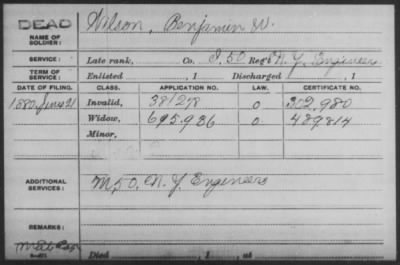 DEAD
NAME OF SOLDIER: Wilson, Benjamin W.
SERVICE: Late rank, Co. I, 50 Reg't N.Y. Engineers
TERM OF SERVICE: Enlisted , 1 Discharged , 1
DATE OF FILING. CLASS. APPLICATION NO. LAW. CERTIFICATE NO.
1880, June 21 Invalid, 381278 0 302,980
Widow, 695,986 0 489,814
Minor,
ADDITIONAL SERVICES: M, 50, N.Y. Engineers
REMARKS:
Died , 1 , at